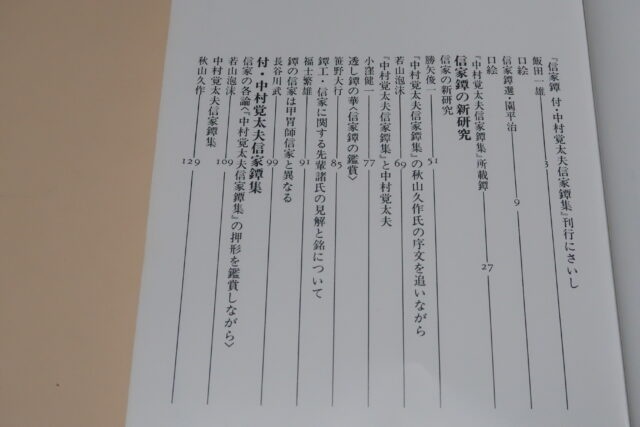 『信家鐔 付・中村覚太夫信家鐔集』刊行にさいし
飯田一雄 3
口絵
信家鐔選・園平治 9
口絵
『中村覚太夫信家鐔集』所載鐔 27
信家鐔の新研究
信家の新研究
勝矢俊一 51
『中村覚太夫信家鐔集』の秋山久作氏の序文を追いながら
若山泡沫 69
『中村覚太夫信家鐔集』と中村覚太夫
小窪健一 77
透し鐔の華〈信家鐔の鑑賞〉
笹野大行 85
鐔工・信家に関する先輩諸氏の見解と銘について
福士繁雄 91
鐔の信家は甲冑師信家と異なる
長谷川武 99
付・中村覚太夫信家鐔集
信家の各論〈『中村覚太夫信家鐔集』の押形を鑑賞しながら〉
若山泡沫 109
中村覚太夫信家鐔集
秋山久作 129